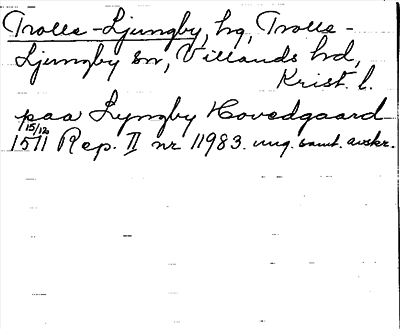 Trolle-Ljungby, hg, Trolle-
Ljungby sn, Villands hd,
Krist. l.
paa Lyngby Hovedgaard
15/12
1571 Rep. II nr 11983. ung. samt. avskr.